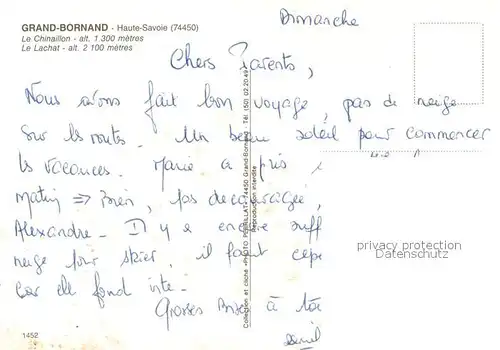 GRAND-BORNAND - Haute-Savoie (74450)
Le Chinaillon - alt. 1 300 mètres
Le Lachat - alt. 2 100 mètres
Dimanche
Chers Parents,
Nous avons fait bon voyage, pas de neige
sur les routes. Un beau soleil pour commencer
les vacances. Marie a pris
matin => Bien, pas découragée,
Alexandre. Il y a encore suff
neige pour skier. il faut
car elle fond vite.
Grosses Bises à
Reproduction interdite
privacy protection
Datenschutz
1452